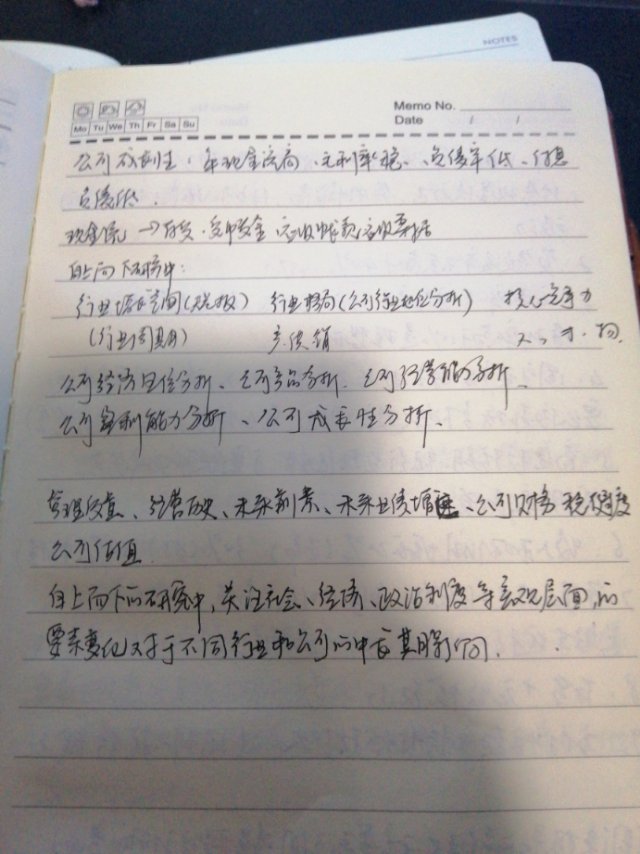 NOTES
Memo No.
Mo Tu We Th Fr Sa Su
Date / /
公司成长性、年现金流高、毛利率稳、负债率低、有息
负债低
现金流 → 存货、货币资金、应收账款、应收票据
自上而下研究中:
行业增长空间(观报) 行业格局(公司行业地位分析) 核心竞争力
(行业周期) 产供销 人、才、物.
公司经济区位分析、公司产品分析、公司经营能力分析、
公司盈利能力分析、公司成长性分析、
管理质量、经营历史、未来前景、未来业绩增、公司财务稳健度
公司估值
自上而下的研究中,关注社会、经济、政治制度等宏观层面的
要素变化对于不同行业和公司的中长期影响.